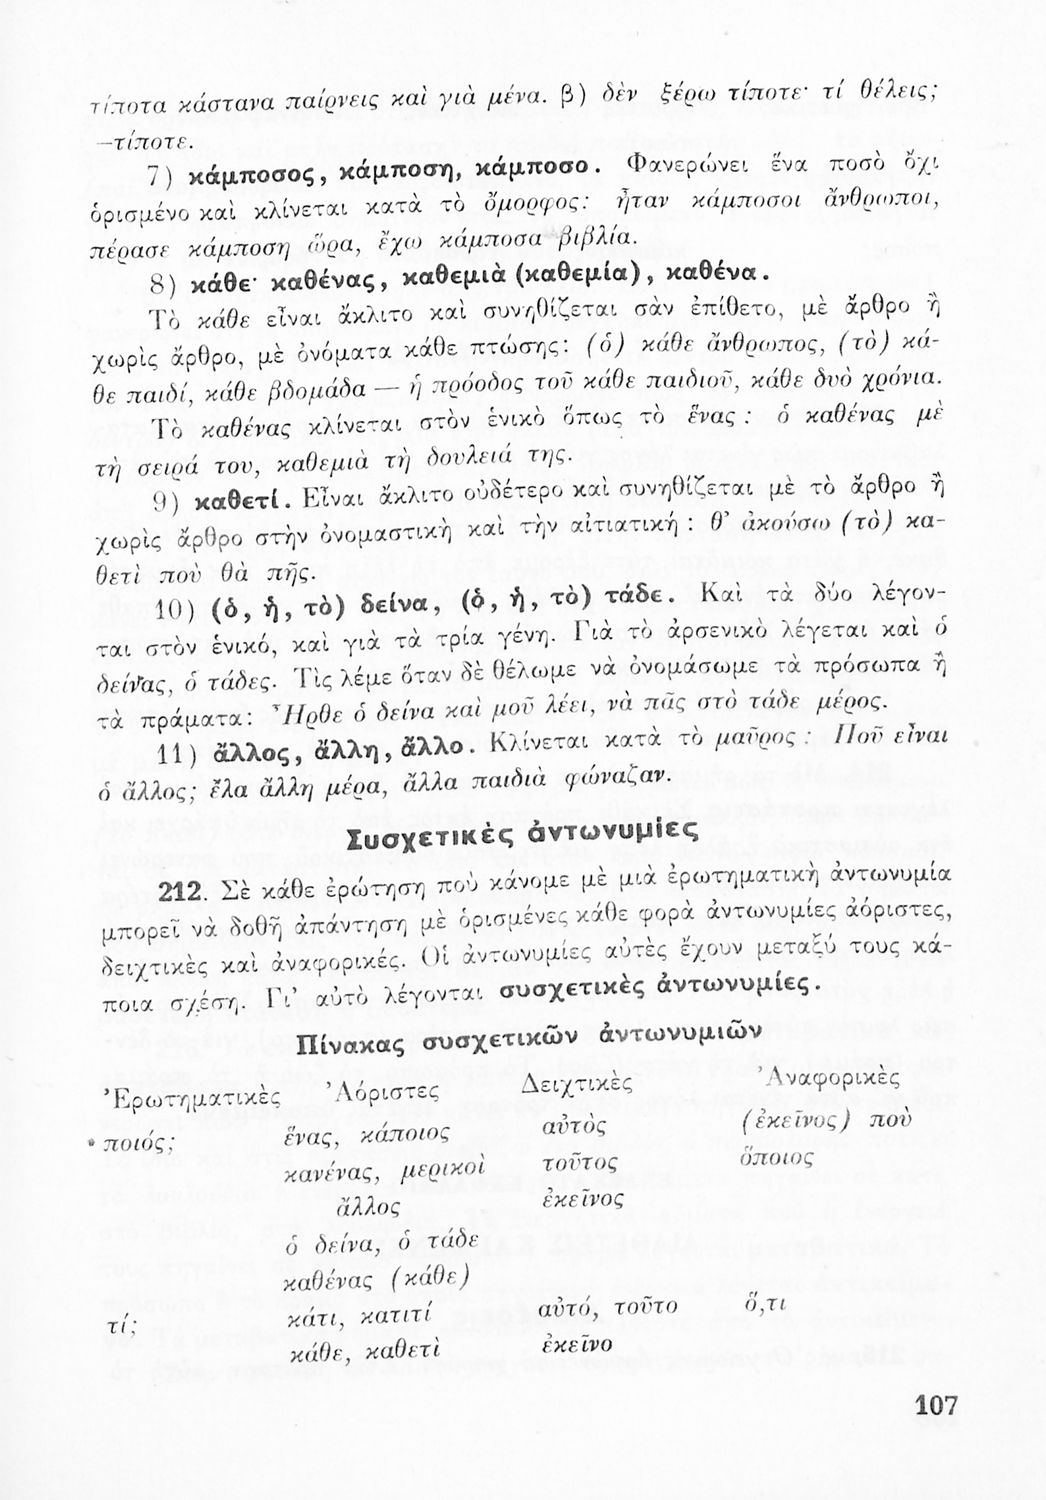 τίποτα κάστανα παίρνεις καὶ γιὰ μένα. β) δὲν ξέρω τίποτε· τί θέλεις;
—τίποτε.
7) κάμποσος, κάμποση, κάμποσο. Φανερώνει ἕνα ποσὸ ὄχι
ὁρισμένο καὶ κλίνεται κατὰ τὸ ὄμορφος: ἦταν κάμποσοι ἄνθρωποι,
πέρασε κάμποση ὥρα, ἔχω κάμποσα βιβλία.
8) κάθε· καθένας, καθεμιὰ (καθεμία), καθένα.
Τὸ κάθε εἶναι ἄκλιτο καὶ συνηθίζεται σὰν ἐπίθετο, μὲ ἄρθρο ἢ
χωρὶς ἄρθρο, μὲ ὀνόματα κάθε πτώσης: (ὁ) κάθε ἄνθρωπος, (τὸ) κά-
θε παιδί, κάθε βδομάδα — ἡ πρόοδος τοῦ κάθε παιδιοῦ, κάθε δυὸ χρόνια.
Τὸ καθένας κλίνεται στὸν ἑνικὸ ὅπως τὸ ἕνας : ὁ καθένας μὲ
τὴ σειρά του, καθεμιὰ τὴ δουλειά της.
9) καθετί. Εἶναι ἄκλιτο οὐδέτερο καὶ συνηθίζεται μὲ τὸ ἄρθρο ἢ
χωρὶς ἄρθρο στὴν ὀνομαστικὴ καὶ τὴν αἰτιατική : θ’ ἀκούσω (τὸ) κα-
θετὶ ποὺ θὰ πῇς.
10) (ὁ, ἡ, τὸ) δείνα, (ὁ, ἡ, τὸ) τάδε. Καὶ τὰ δύο λέγον-
ται στὸν ἑνικό, καὶ γιὰ τὰ τρία γένη. Γιὰ τὸ ἀρσενικὸ λέγεται καὶ ὁ
δείνας, ὁ τάδες. Τὶς λέμε ὅταν δὲ θέλωμε νὰ ὀνομάσωμε τὰ πρόσωπα ἢ
τὰ πράματα: Ἦρθε ὁ δείνα καὶ μοῦ λέει, νὰ πᾶς στὸ τάδε μέρος.
11) ἄλλος, ἄλλη, ἄλλο. Κλίνεται κατὰ τὸ μαῦρος : Ποῦ εἶναι
ὁ ἄλλος; ἔλα ἄλλη μέρα, ἄλλα παιδιὰ φώναζαν.
Συσχετικὲς ἀντωνυμίες
212. Σὲ κάθε ἐρώτηση ποὺ κάνομε μὲ μιὰ ἐρωτηματικὴ ἀντωνυμία
μπορεῖ νὰ δοθῆ ἀπάντηση μὲ ὁρισμένες κάθε φορὰ ἀντωνυμίες ἀόριστες,
δειχτικὲς καὶ ἀναφορικές. Οἱ ἀντωνυμίες αὐτὲς ἔχουν μεταξύ τους κά-
ποια σχέση. Γι’ αὐτὸ λέγονται συσχετικὲς ἀντωνυμίες.
Πίνακας συσχετικῶν ἀντωνυμιῶν
Ἐρωτηματικὲς Ἀόριστες Δειχτικὲς Ἀναφορικὲς
ποιός; ἕνας, κάποιος αὐτὸς (ἐκεῖνος) ποὺ
κανένας, μερικοὶ τοῦτος ὅποιος
ἄλλος ἐκεῖνος
ὁ δείνα, ὁ τάδε
καθένας (κάθε)
τί; κάτι, κατιτί αὐτό, τοῦτο ὅ,τι
κάθε, καθετὶ ἐκεῖνο
107